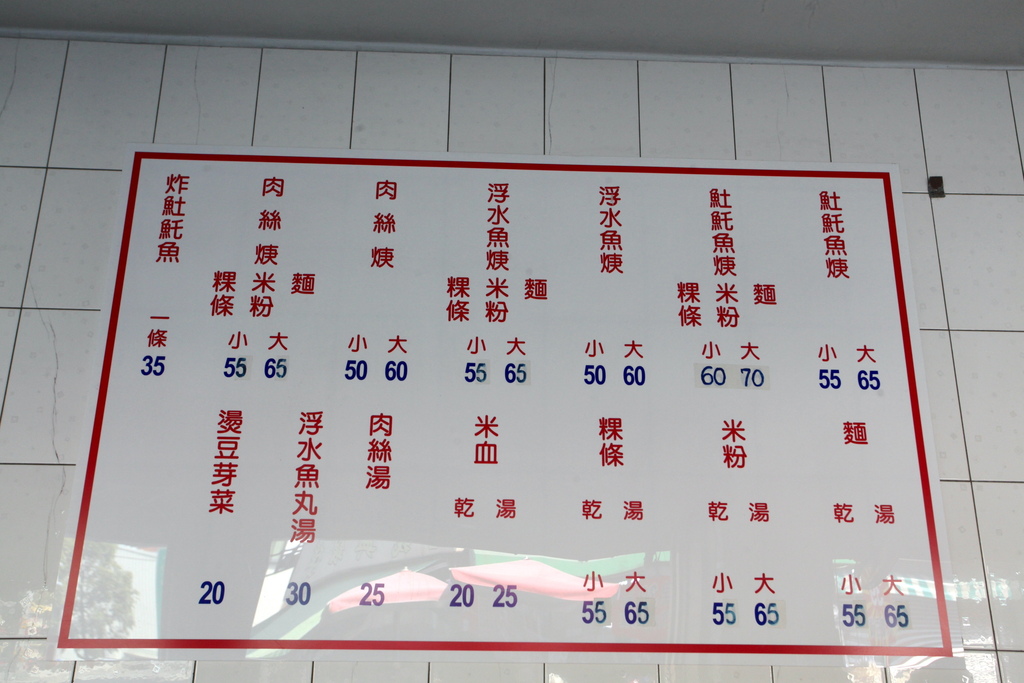 魠魠魚焿
小 大
55 65
魠魠魚焿 麵 米粉 粿條
小 大
60 70
浮水魚焿
小 大
50 60
浮水魚焿 麵 米粉 粿條
小 大
55 65
肉絲焿
小 大
50 60
肉絲焿 麵 米粉 粿條
小 大
55 65
炸魠魠魚
一條
35
麵
乾 湯
小 大
55 65
米粉
乾 湯
小 大
55 65
粿條
乾 湯
小 大
55 65
米血
乾 湯
20 25
肉絲湯
25
浮水魚丸湯
30
燙豆芽菜
20